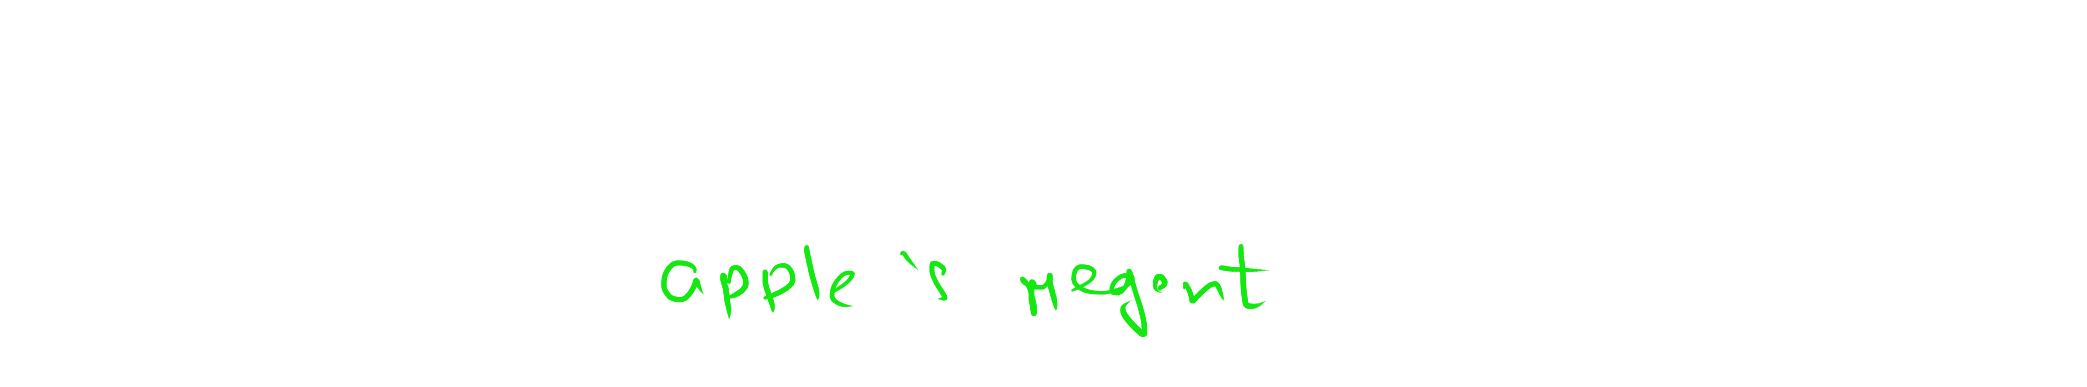 apple's regont